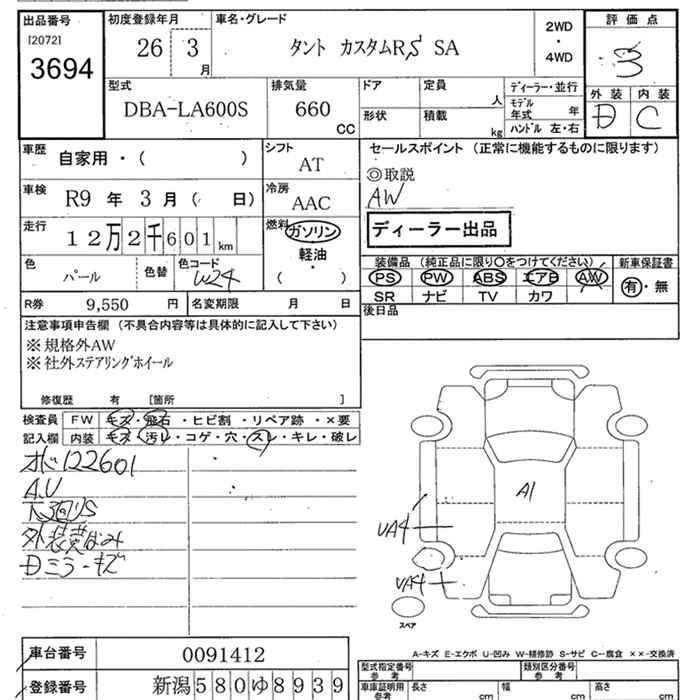 出品番号 初度登録年月 車名・グレード 評価点
[2072]
3694
26 3月 タント カスタムRS SA
2WD ・ 4WD
3
型式 排気量 ドア 定員 ディーラー・並行 外装 内装
DBA-LA600S 660 CC
人 モデル年式 年
D C
形状 積載 kg ハンドル 左・右
車歴 自家用・( )
シフト AT
セールスポイント (正常に機能するものに限ります)
◎取説
AW
車検 R9年 3月( 日)
冷房 AAC
走行 12万2千601km
燃料 ガソリン
軽油・
( )
ディーラー出品
色 パール 色替 色コード W24
装備品 (純正品に限り○をつけてください) 新車保証書
PS PW ABS エアB AW 有・無
SR ナビ TV カワ
R券 9,550円 名変期限 月 日
後日品
注意事項申告欄 (不具合内容等は具体的に記入して下さい)
※規格外AW
※社外ステアリングホイール
修復歴 有 [箇所 ]
検査員 FW キズ・飛石・ヒビ割・リペア跡・×要
記入欄 内装 キズ・汚レ・コゲ・穴・スレ・キレ・破レ
122601
A.U
下回りS
Dミラーキズ
A1
UA4
UA4
スペア
A-キズ E-エクボ U-凹み W-補修跡 S-サビ C-腐食 ××-交換済
車台番号 0091412
登録番号 新潟580ゆ8939
型式指定番号 参考 類別区分番号 参考
車庫証明用 参考 長さ cm 幅 cm 高さ cm